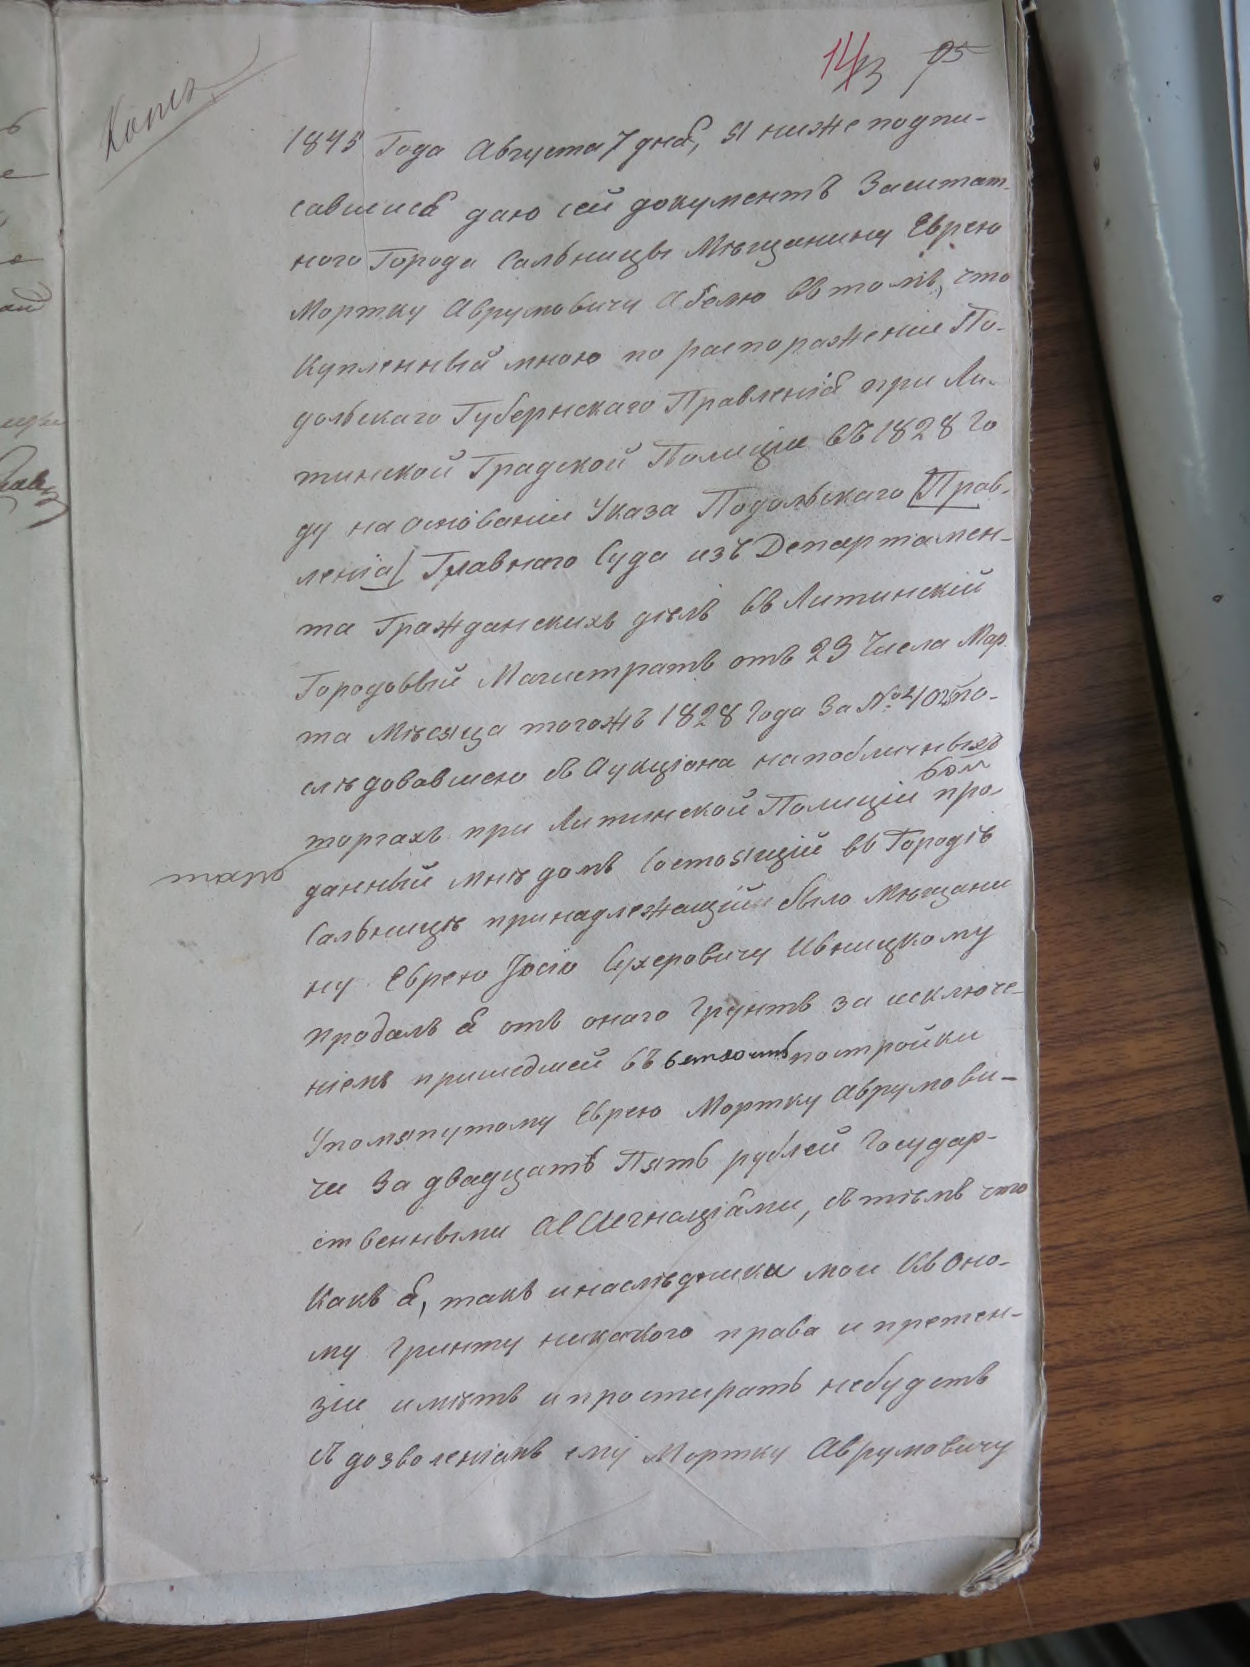 Копія
14 13 95
1845 Года Августа 7 дня, я нижеподпи-
савшися даю сей документъ Заштат-
ного Города Сальницы Мѣщанину Еврею
Мортку Аврумовичу въ томъ, что
Купленный мною по распоряженію По-
дольскаго Губернскаго Правленія при Ли-
тинской Градской Полиціи въ 1828 Го
ду на основаніи Указа Подольскаго [Прав-
ленія] Главнаго Суда изъ Департамен-
та Гражданскихъ дѣлъ въ Литинскій
Городовый Магистратъ отъ 23 Числа Мар
та Мѣсяца тогожъ 1828 Года За № по-
слѣдовавшею съ Аукціона на побличныхъ
торгахъ при Литинской Полиціи про-
данный мнѣ домъ Состоящій въ Городѣ
Сальницѣ принадлежащій было Мѣщани
ну Еврею Іосію Сухеровичу Ивницкому
продалъ я отъ онаго Грунтъ за исключе-
ніемъ пришедшей въ ветхость постройки
Упомянутому Еврею Мортку Аврумови-
чи За двадцать Пять рублей Государ-
ственными Ассигнаціями, съ тѣмъ что
Какъ я, такъ и наслѣдники мои Къ Оно-
му Гринту никакого права и претен-
зіи имѣть и простирать небудетъ
съ дозволеніемъ ему Мортку Аврумовичу